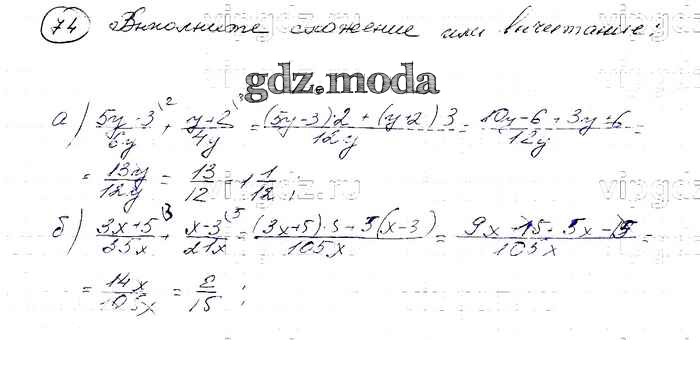 74 Выполните сложение или вычитание:
gdz.moda
а) (5y-3)/6y \2 + (y+2)/4y \3 = ((5y-3)·2+(y+2)3)/12y = (10y-6+3y+6)/12y =
= 13y/12y = 13/12 = 1 1/12;
б) (3x+5)/35x \3 + (x-3)/21x \5 = ((3x+5)·3+5(x-3))/105x = (9x+15+5x-15)/105x =
= 14x/105x = 2/15;